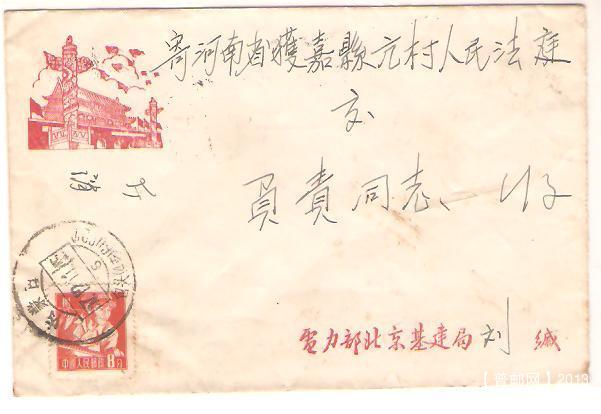 寄河南省獲嘉縣亢村人民法庭
交
負責同志 收
電力部北京基建局 刘 緘
中國人民郵政 8分
【普邮网】2013